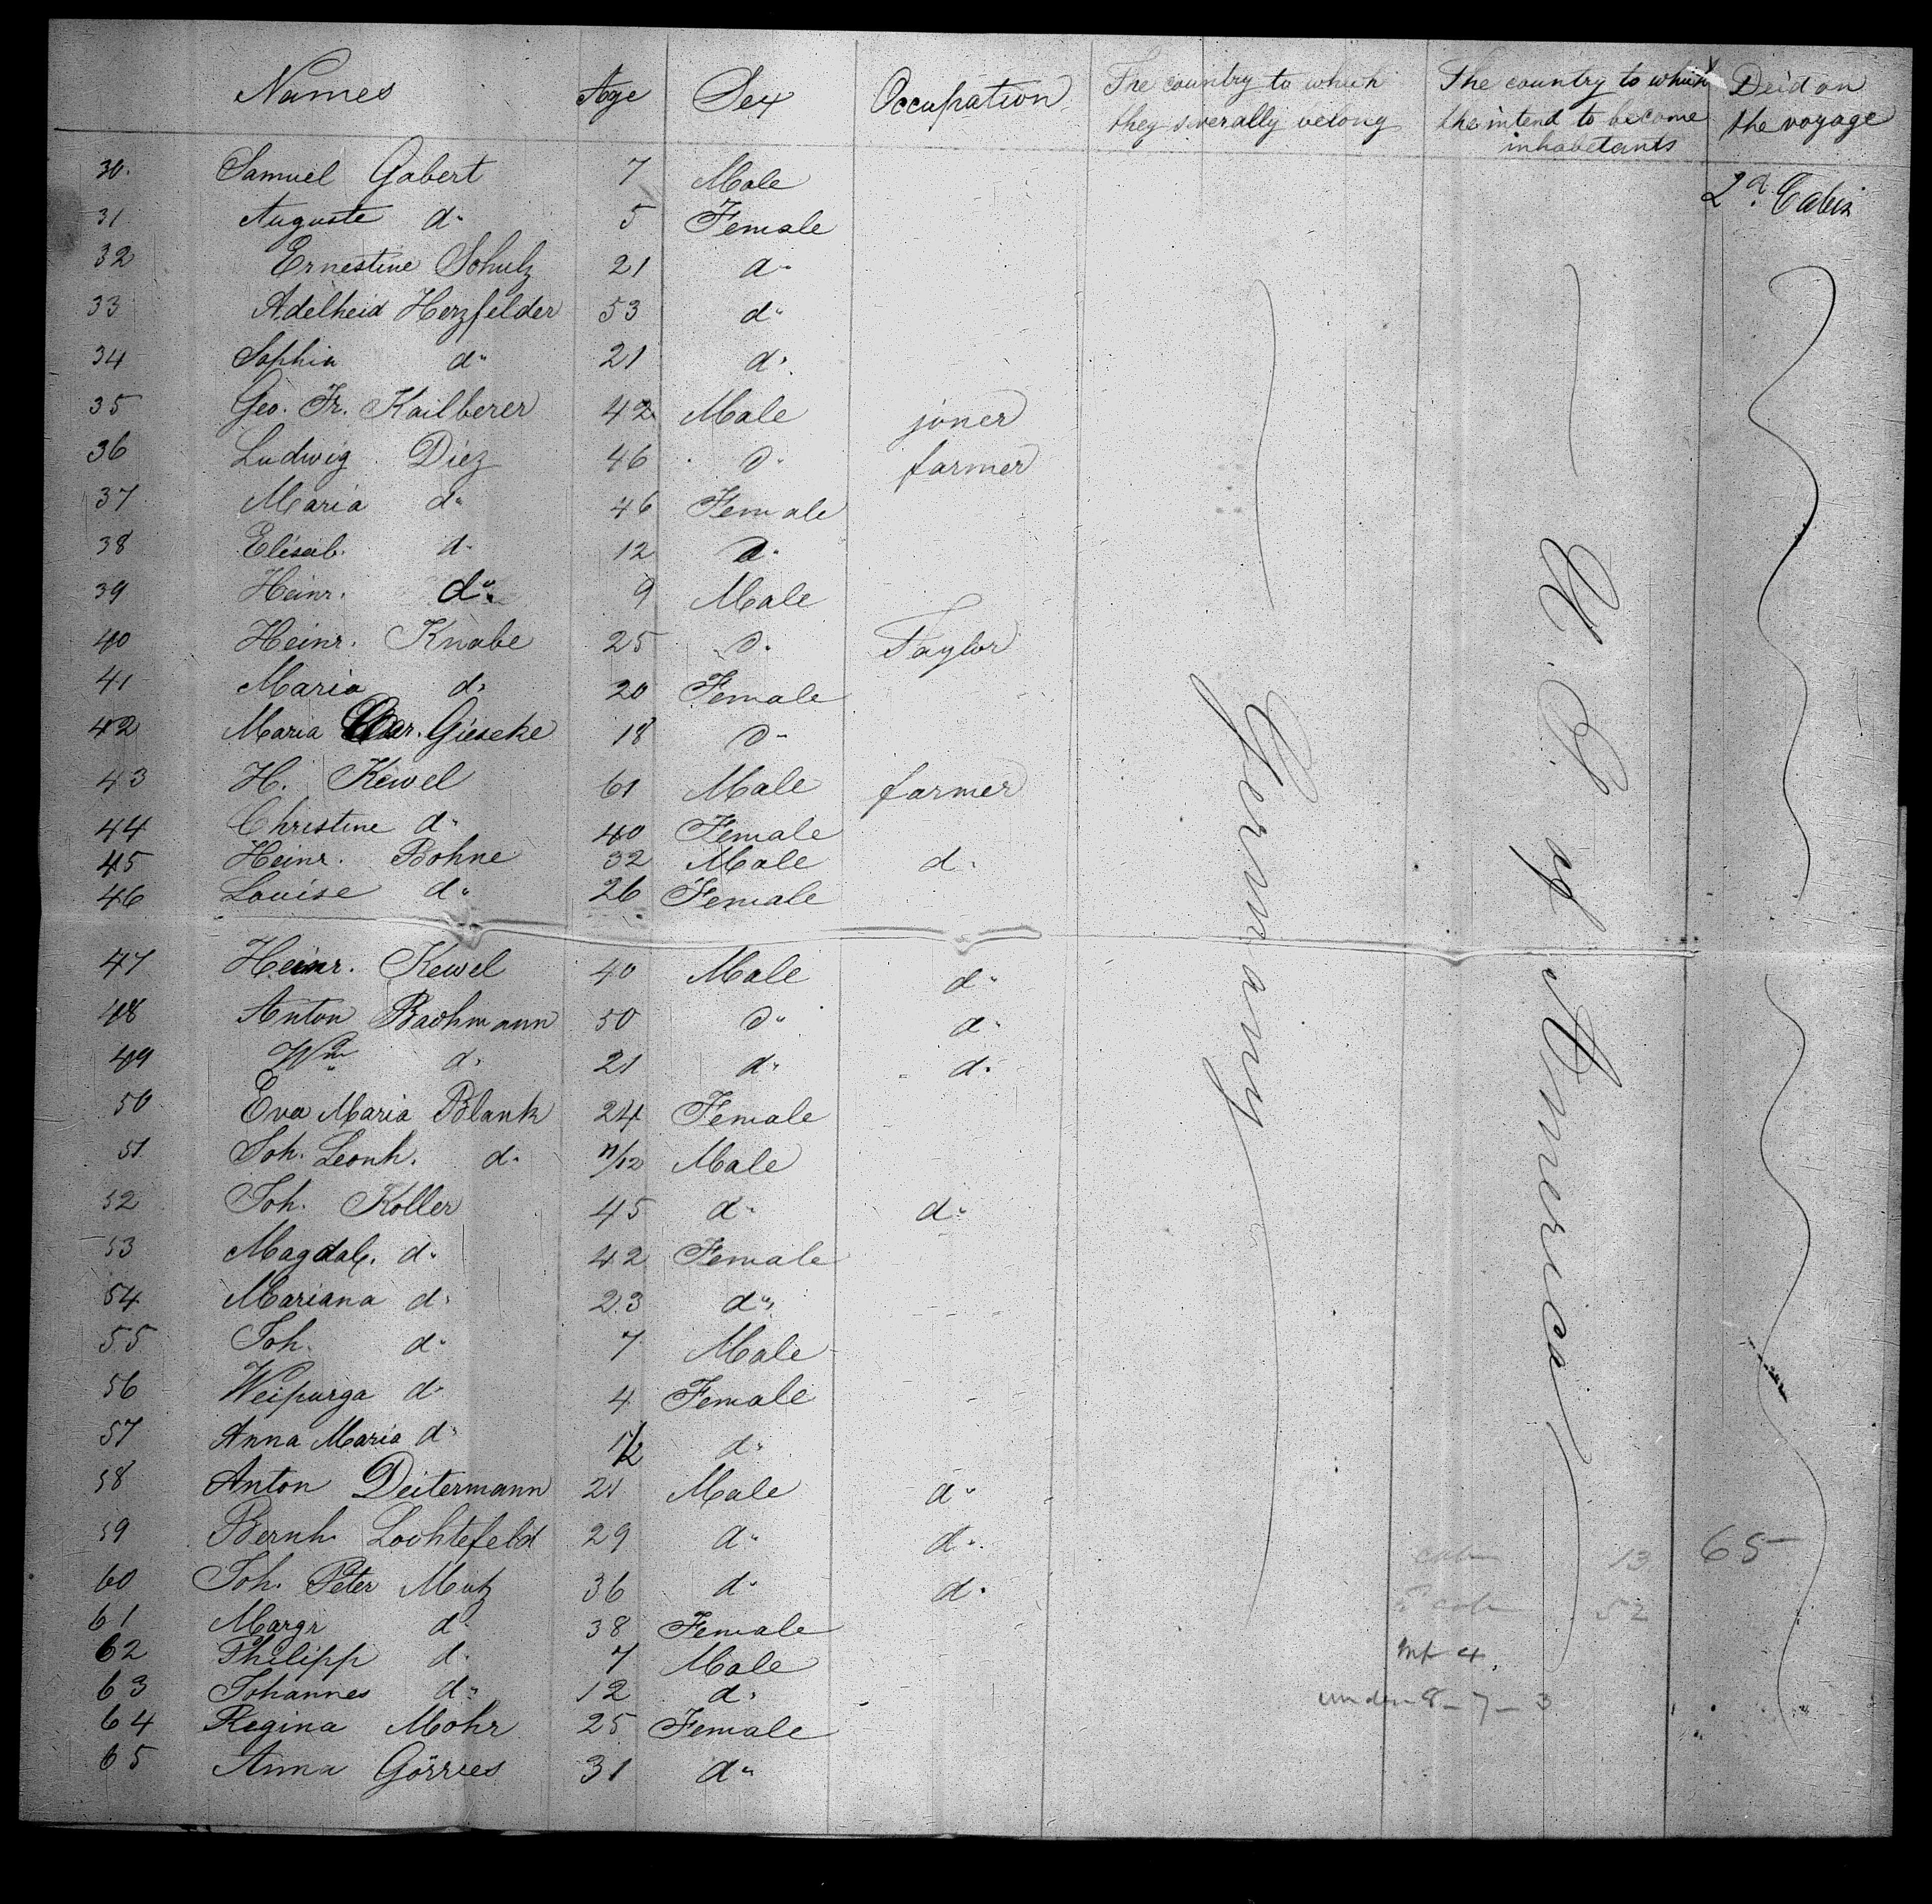 Names Age Sex Occupation The country to which they severally belong The country to which the intend to become inhabetants Deid on the voyage
30. Samuel Gabert 7 Male 2d. Cabin
31 Auguste do 5 Female
32 Ernestine Schulz 21 do
33 Adelheid Herzfelder 53 do
34 Sophia do 21 do
35 Geo. Fr. Kailberer 42 Male joner
36 Ludwig Diez 46 do farmer
37 Maria do 46 Female
38 Elisab. do 12 do
39 Heinr. do 9 Male
40 Heinr. Knabe 25 do Taylor
41 Maria do 20 Female
42 Maria Gieseke 18 do
43 H. Kewel 61 Male farmer
44 Christine do 40 Female
45 Heinr. Bohne 32 Male do
46 Louise do 26 Female
47 Heinr. Kewel 40 Male do
48 Anton Bachmann 50 do do
49 Wm do 21 do do
50 Eva Maria Blank 24 Female
51 Joh. Leonh. do 11/12 Male
52 Joh. Koller 45 do do
53 Magdal. do 42 Female
54 Mariana do 23 do
55 Joh. do 7 Male
56 Weipurga do 4 Female
57 Anna Maria do 1/2 do
58 Anton Deitermann 21 Male do
59 Bernh. Lochtefeld 29 do do
60 Joh. Peter Mutz 36 do do
61 Margr do 38 Female
62 Philipp do 7 Male
63 Johannes do 12 do
64 Regina Mohr 25 Female
65 Anna Görries 31 do
Germany
U. S. of America
cab 13 65
2 cab 52
Inf 4.
under 8 - 7 - 3